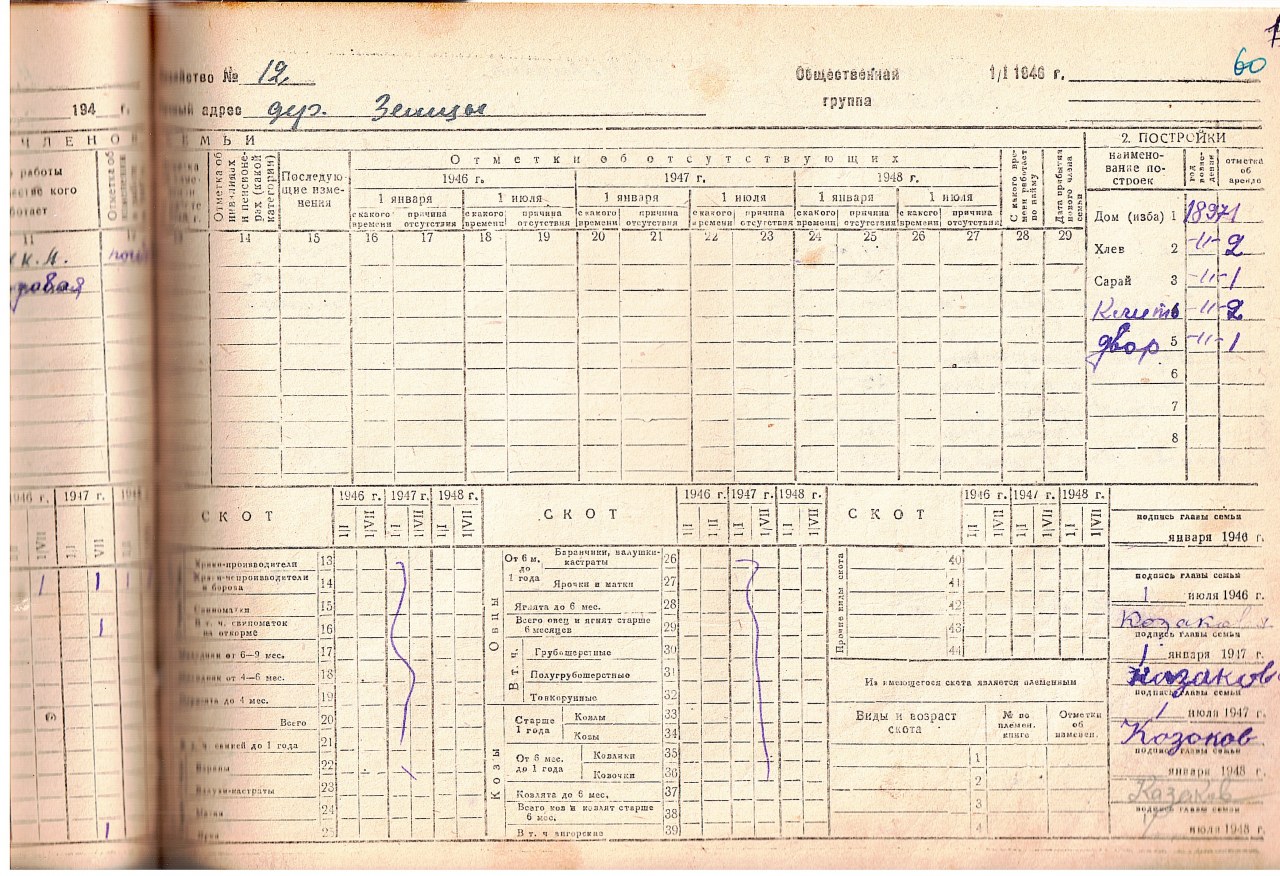 1
60
Хозяйство № 12
Общественная группа
1/I 1946 г.
194 г.
адрес дер. Зенцы
ЧЛЕНОВ СЕМЬИ
2. ПОСТРОЙКИ
работы
кого
11
к.м.
Отметка об инвалидах и пенсионерах (какой категории)
Последующие изменения
Отметки об отсутствующих
1946 г. 1947 г. 1948 г.
1 января 1 июля 1 января 1 июля 1 января 1 июля
с какого времени причина отсутствия с какого времени причина отсутствия с какого времени причина отсутствия с какого времени причина отсутствия с какого времени причина отсутствия с какого времени причина отсутствия
С какого времени работает по найму
Дата прибытия нового члена семьи
14 15 16 17 18 19 20 21 22 23 24 25 26 27 28 29
наименование построек
год возведения
отметка об аренде
Дом (изба) 1 1897 1
Хлев 2 -"- 2
Сарай 3 -"- 1
Клить -"- 2
двор 5 -"- 1
6
7
8
1946 г. 1947 г.
I/VII I/I VII
1 1 1
1
1
СКОТ
1946 г. 1947 г. 1948 г.
I/I I/VII I/I I/VII I/I I/VII
Хряки-производители 13
Хряки-непроизводители и борова 14
Свиноматки 15
В т. ч. свиноматок на откорме 16
от 6—9 мес. 17
от 4—6 мес. 18
Поросята до 4 мес. 19
Всего 20
В т. ч. свиней до 1 года 21
Бараны 22
Валухи-кастраты 23
Матки 24
Ярки 25
СКОТ
1946 г. 1947 г. 1948 г.
I/I I/II I/I I/VII I/I I/VII
Овцы
От 6 м. до 1 года
Баранчики, валушки-кастраты 26
Ярочки и матки 27
Ягнята до 6 мес. 28
Всего овец и ягнят старше 6 месяцев 29
В т. ч.
Грубошерстные 30
Полугрубошерстные 31
Тонкорунные 32
Козы
Старше 1 года
Козлы 33
Козы 34
От 6 мес. до 1 года
Козлики 35
Козочки 36
Козлята до 6 мес. 37
Всего коз и козлят старше 6 мес. 38
В т. ч ангорские 39
СКОТ
1946 г. 1947 г. 1948 г.
I/I I/VII I/I I/VII I/I I/VII
Прочие виды скота
40
41
42
43
44
Из имеющегося скота является племенным
Виды и возраст скота
№ по племен. книге
Отметки об изменен.
1
2
3
4
подпись главы семьи
января 1946 г.
подпись главы семьи
1 июля 1946 г.
Козаков
подпись главы семьи
1 января 1947 г.
Казаков
подпись главы семьи
1 июля 1947 г.
Козоков
подпись главы семьи
января 1948 г.
Казаков
подпись главы семьи
июля 1948 г.